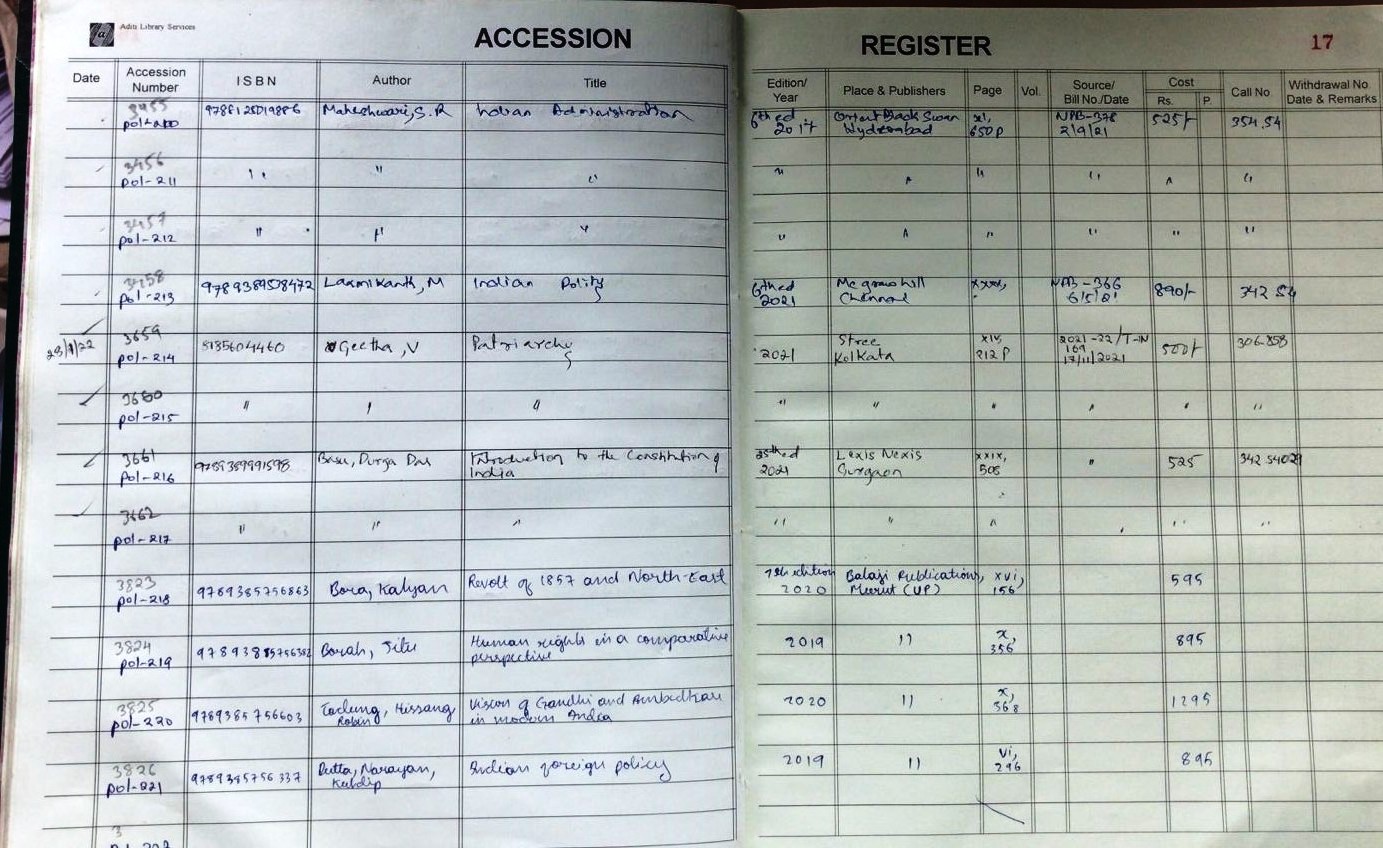 Aditi Library Services
ACCESSION
REGISTER
17
Date
Accession Number
ISBN
Author
Title
Edition/ Year
Place & Publishers
Page
Vol.
Source/ Bill No./Date
Cost
Rs.
P.
Call No
Withdrawal No Date & Remarks
3455
Maheshwari, S.R
Indian Administration
6th ed
Orient Black Swan
xl,
NPB-378
525/-
354.54
2017
Hyderabad
650p
2/9/21
3456
pol-211
" " " " " " " " "
3457
pol-212
" " " " " " " " "
3458
9789389538472
Laxmikanth, M
Indian Polity
6th ed
Mc graw hill
NPB-366
890/-
342.54
pol-213
2021
Chennai
6/5/21
3659
8185604460
Geetha, V
Patriarchy
Stree
xix
2021-22/T-IN
500/-
306.858
pol-214
2021
Kolkata
212 p
169
17/11/2021
3660
pol-215
" " " " " " " " "
3661
9789389991598
Basu, Durga Das
Introduction to the Constitution of
25th ed
Lexis Nexis
xxix,
"
525
pol-216
India
2021
Gurgaon
508
3662
pol-217
" " " " " " " "
3823
9789385756863
Bora, Kalyan
Revolt of 1857 and North-East
1st edition
Balaji Publications,
xvi,
595
pol-218
2020
Meerut (UP)
156
3824
Borah, Jitu
Human rights in a comparative
2019
"
x,
895
pol-219
perspective
356
3825
9789385756603
Hissang,
Vision of Gandhi and Ambedkar
2020
"
x,
1295
pol-220
Robin
in modern India
368
3826
9789385756337
Dutta, Narayan,
Indian foreign policy
2019
"
vi,
895
pol-221
Kuldip
296
3